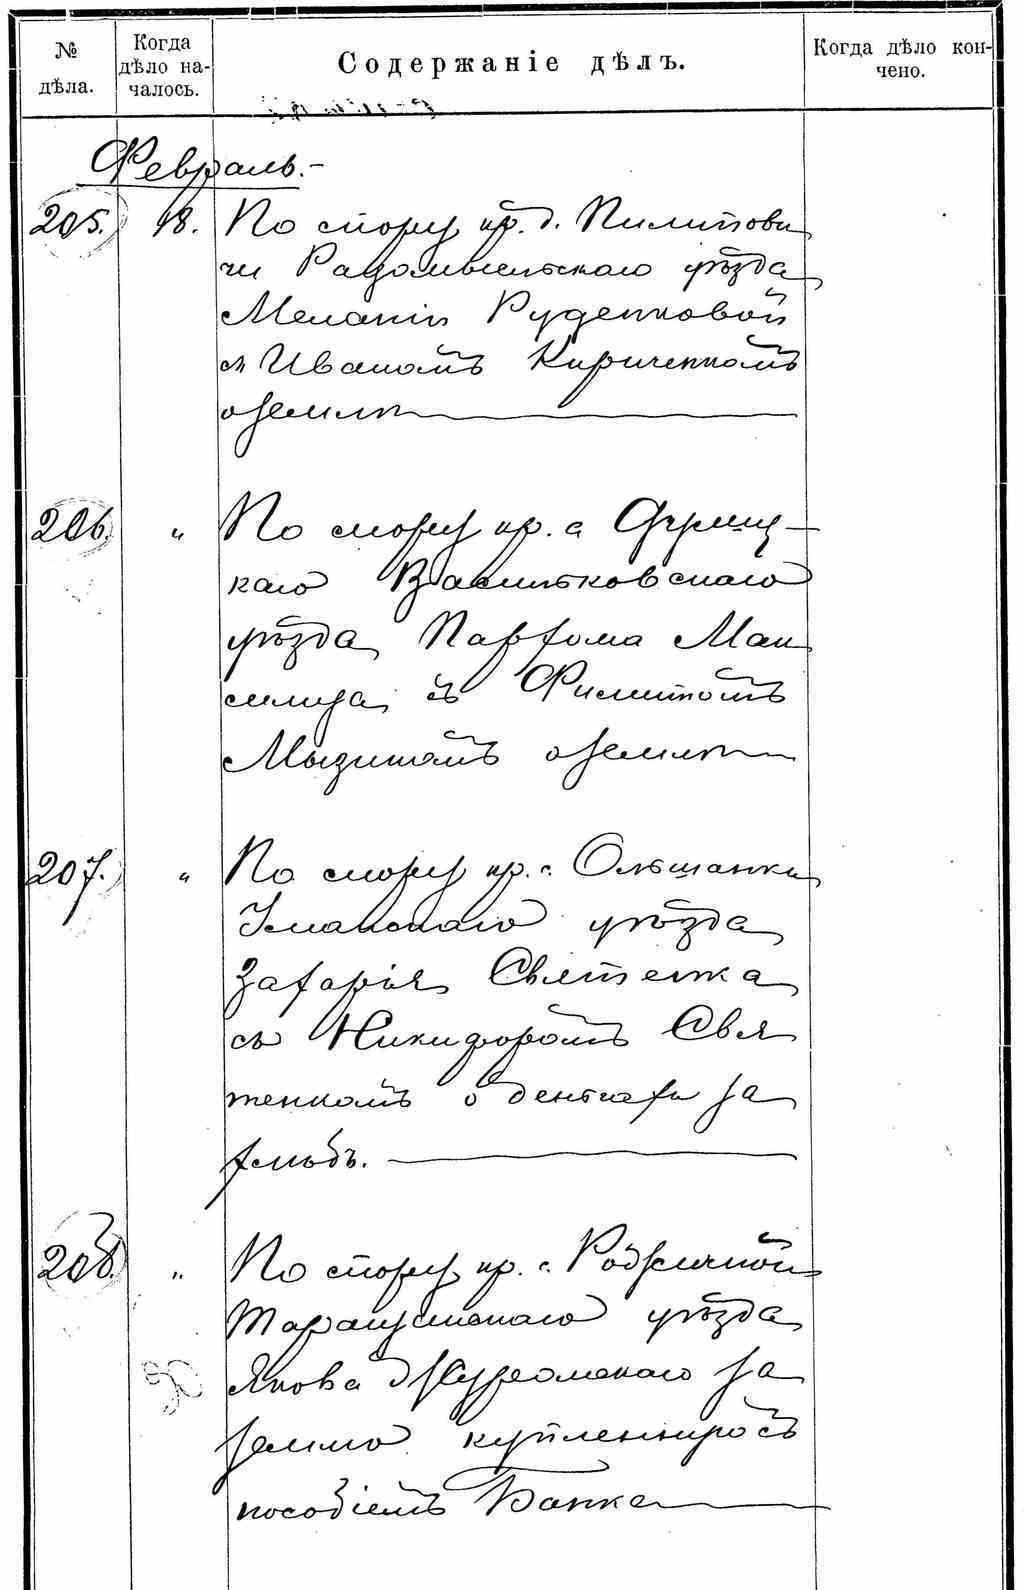 №
дѣла.
Когда
дѣло на-
чалось.
Содержаніе дѣлъ.
Когда дѣло кон-
чено.
Февраль.-
205. 18. По спору кр. д. Пилипови
чи Радомысльскаго уѣзда
Меланіи Руденковой
съ Иваномъ Кириченкомъ
о землѣ
206. " По спору кр. с.
каго Васильковскаго
уѣзда Пархома Мак
съ Филипомъ
о землѣ
207. " По спору кр. с. Ольшанки
Уманскаго уѣзда
Захарія Святенка
съ Никифоромъ Свя
тенкомъ о деньгахъ за
хлѣбъ.
208. " По спору кр. с.
Таращанскаго уѣзда
Якова за
землю купленную съ
пособіемъ Банка